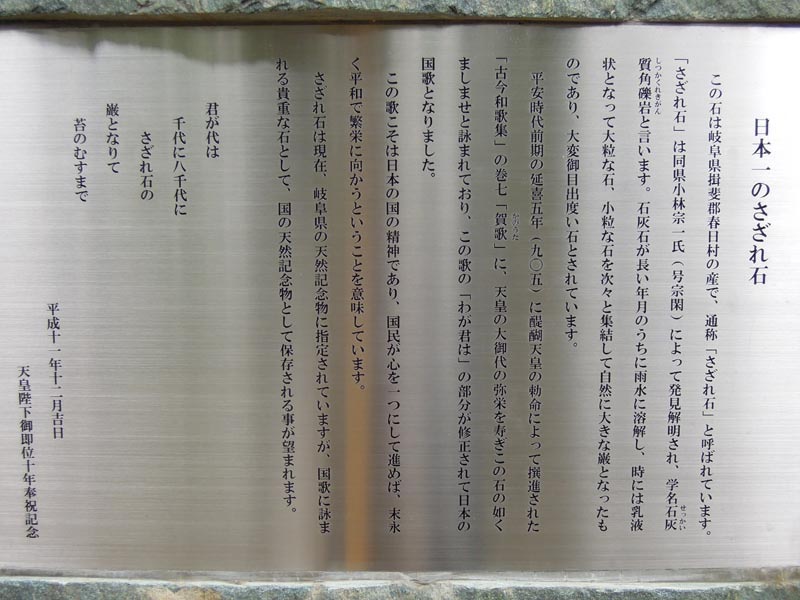 日本一のさざれ石
この石は岐阜県揖斐郡春日村の産で、通称「さざれ石」と呼ばれています。
「さざれ石」は同県小林宗一氏（号宗閑）によって発見解明され、学名石灰
せっかい
質角礫岩と言います。石灰石が長い年月のうちに雨水に溶解し、時には乳液
しつかくれきがん
状となって大粒な石、小粒な石を次々と集結して自然に大きな巌となったも
のであり、大変御目出度い石とされています。
平安時代前期の延喜五年（九〇五）に醍醐天皇の勅命によって撰進された
「古今和歌集」の巻七「賀歌」に、天皇の大御代の弥栄を寿ぎこの石の如く
がのうた
ましませと詠まれており、この歌の「わが君は」の部分が修正されて日本の
国歌となりました。
この歌こそは日本の国の精神であり、国民が心を一つにして進めば、末永
く平和で繁栄に向かうということを意味しています。
さざれ石は現在、岐阜県の天然記念物に指定されていますが、国歌に詠ま
れる貴重な石として、国の天然記念物として保存される事が望まれます。
君が代は
千代に八千代に
さざれ石の
巌となりて
苔のむすまで
平成十一年十二月吉日
天皇陛下御即位十年奉祝記念